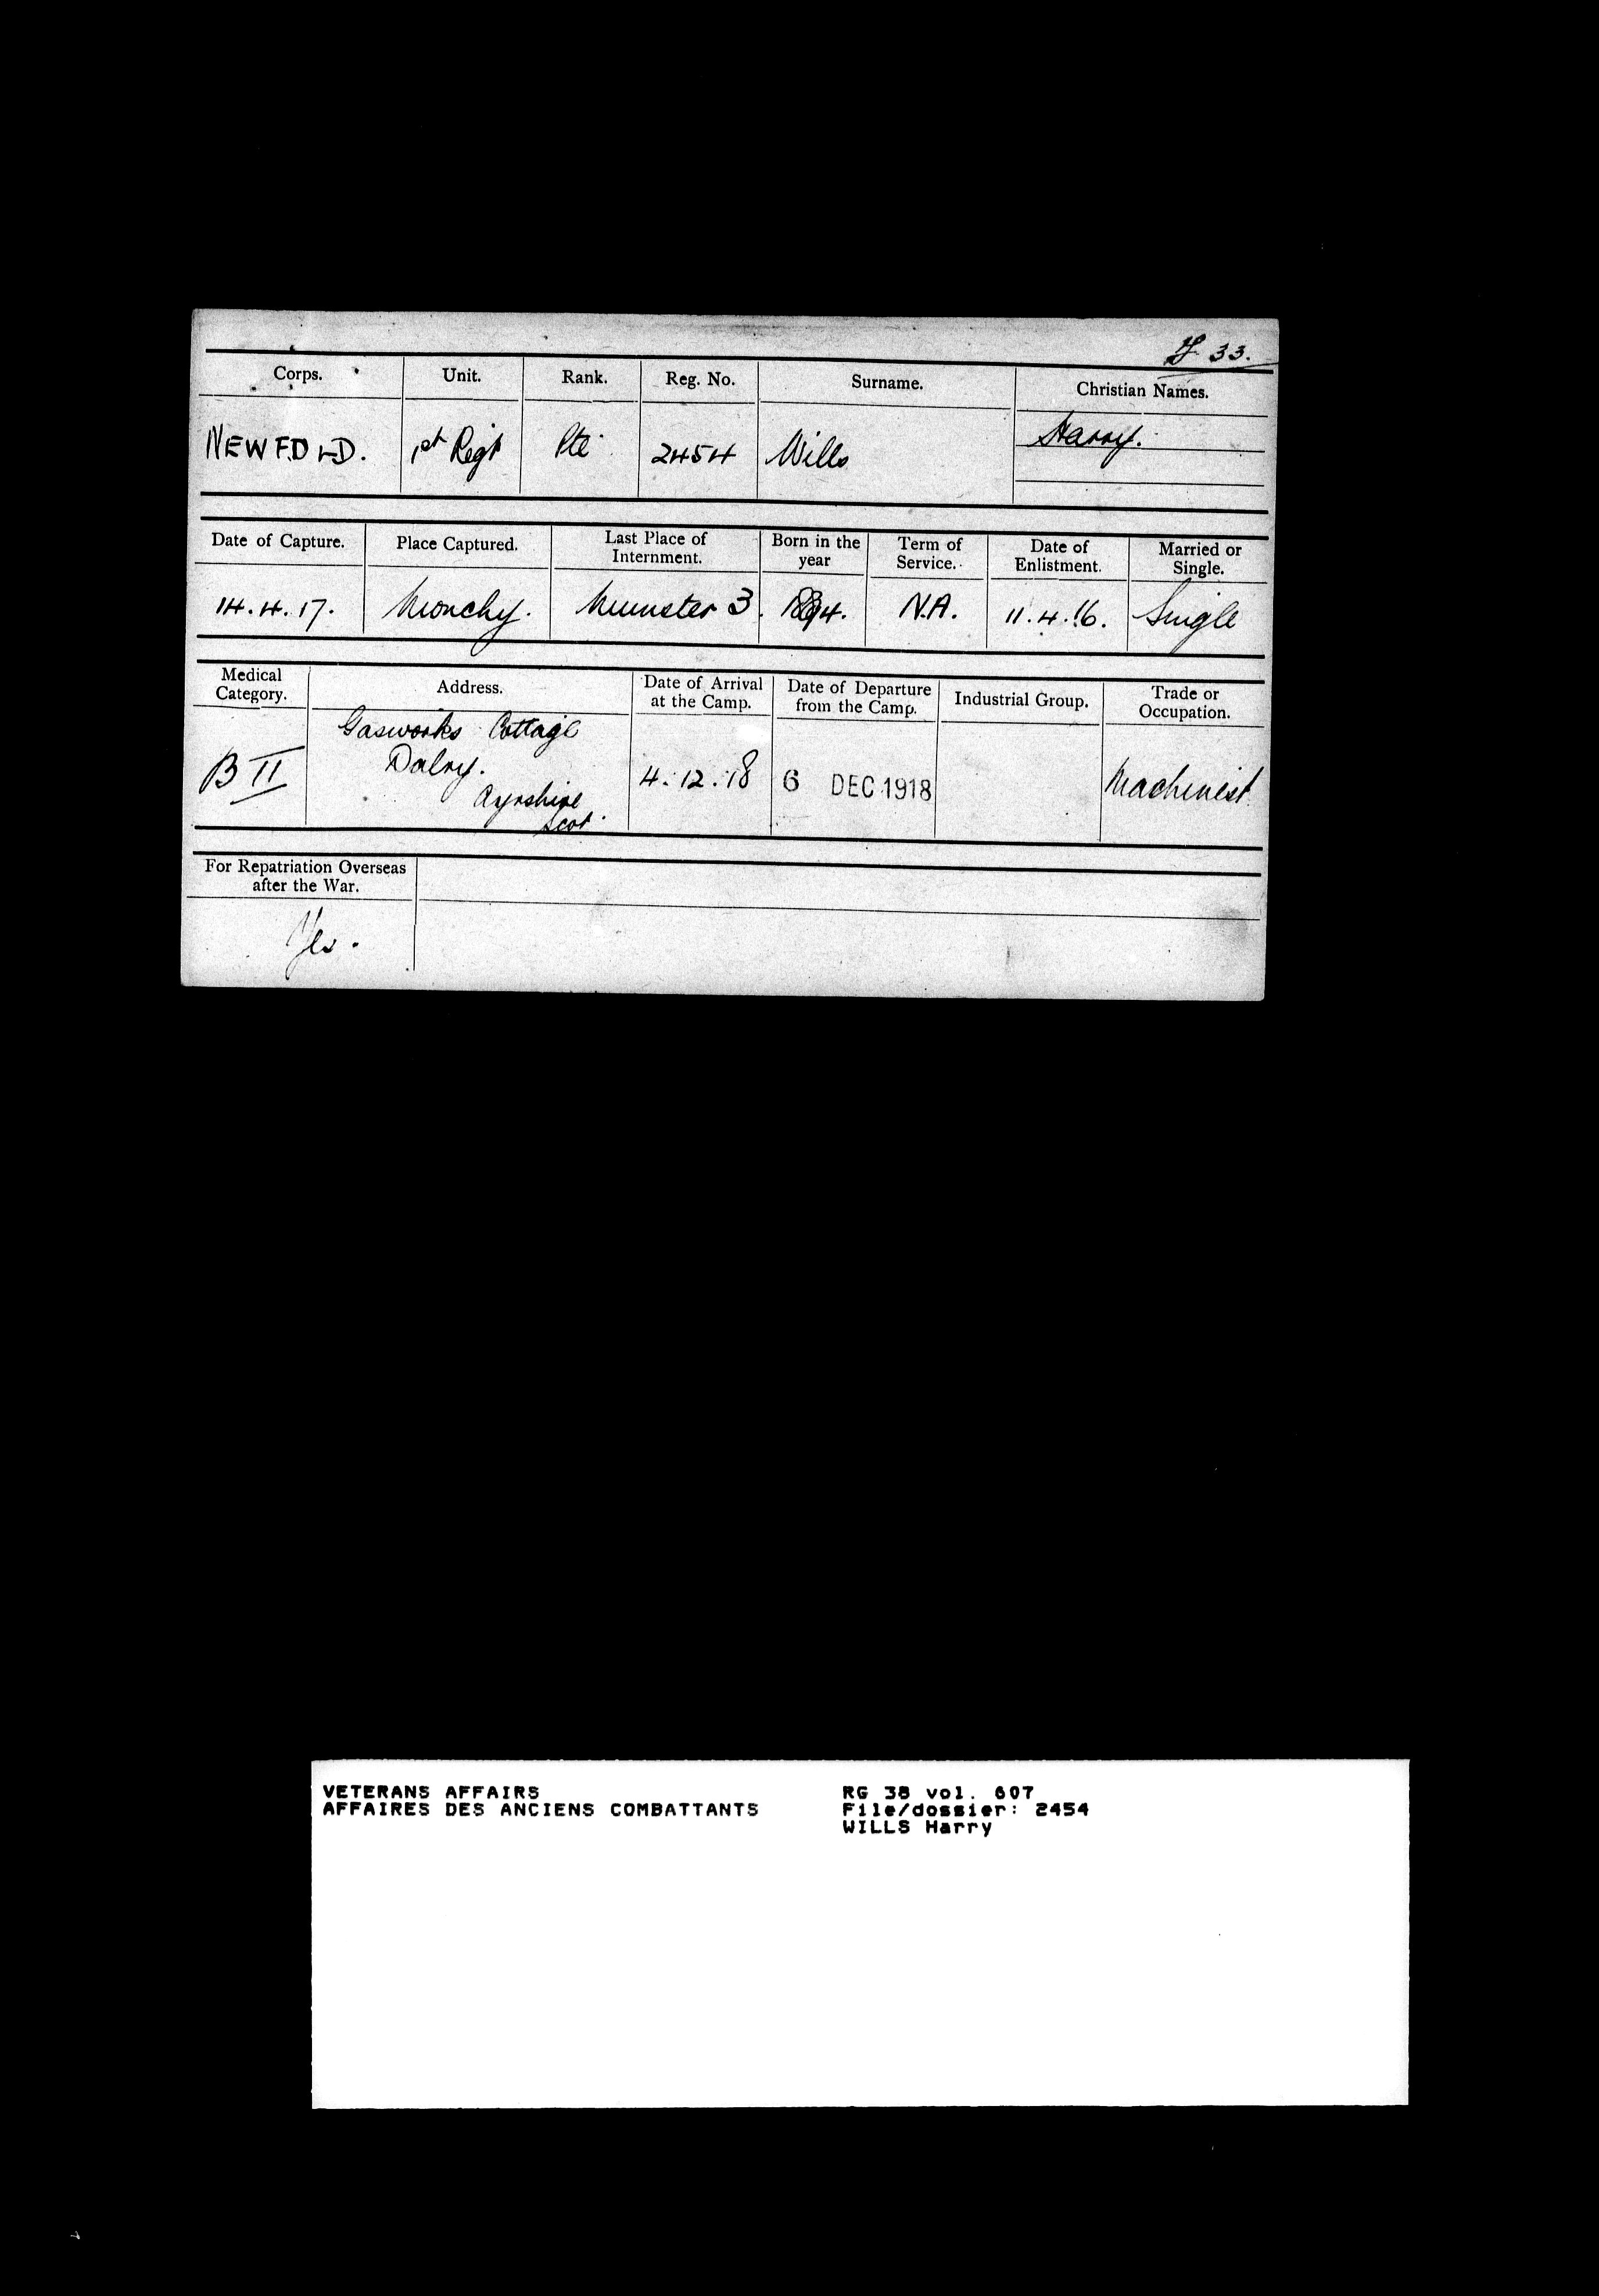 33.
Corps. Unit. Rank. Reg. No. Surname. Christian Names.
NEWFD LD. 1st Regt Pte 2454 Wills Harry.
Date of Capture. Place Captured. Last Place of Internment. Born in the year Term of Service. Date of Enlistment. Married or Single.
14.4.17. Monchy. Munster 3. N.A. 11.4.16. Single
Medical Category. Address. Date of Arrival at the Camp. Date of Departure from the Camp. Industrial Group. Trade or Occupation.
Gasworks Cottage
B II Dalry. 4.12.18 6 DEC 1918 Machinist
Ayrshire
Scot.
For Repatriation Overseas after the War.
Yes.
VETERANS AFFAIRS RG 38 vol. 607
AFFAIRES DES ANCIENS COMBATTANTS File/dossier: 2454
WILLS Harry